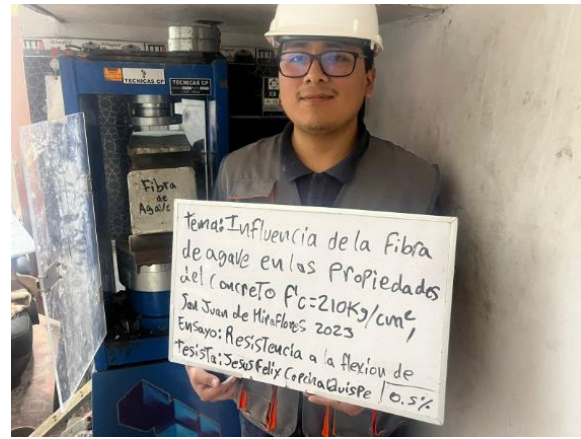 TECNICAS CP
TECNICAS CP
Fibra
de
Agave
Tema: Influencia de la Fibra
de agave en las Propiedades
del Concreto F'c=210Kg/cm²,
San Juan de Miraflores 2023
Ensayo: Resistencia a la flexion de
Tesista: Jesus Felix Copcina Quispe
0.5%